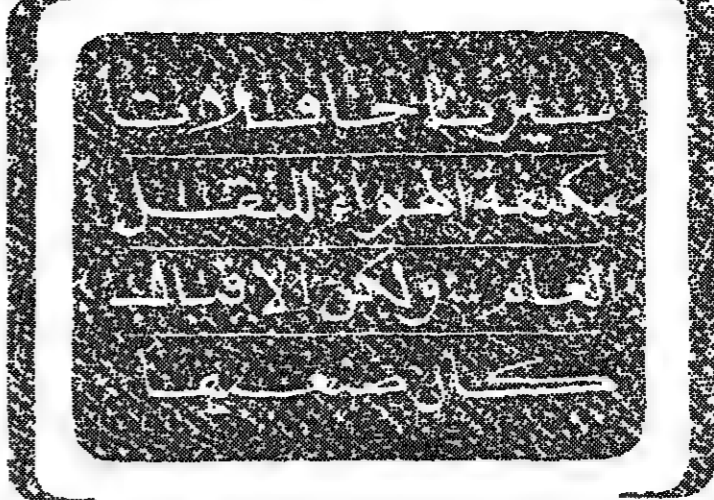 سيرنا حافلات
مكيفة الهواء للنقل
العام ولكن الاقبال
كان ضعيفا